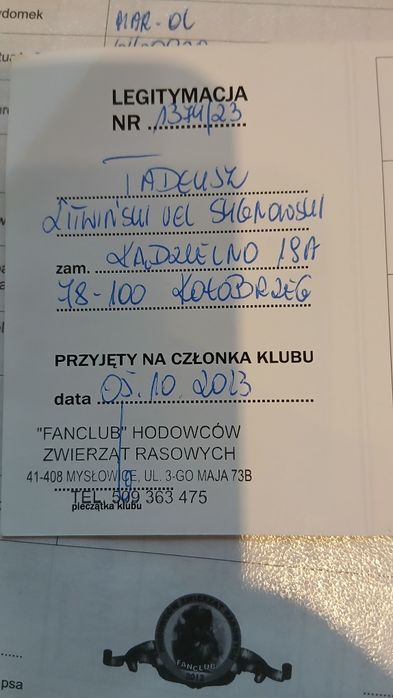 ydomek
MAR-OL
LEGITYMACJA
NR 1374/23
TADEUSZ
LITWIŃSKI VEL
zam. KĄDZIELNO 19A
78-100 KOŁOBRZEG
PRZYJĘTY NA CZŁONKA KLUBU
data 05.10.2023
"FANCLUB" HODOWCÓW
ZWIERZĄT RASOWYCH
41-408 MYSŁOWICE, UL. 3-GO MAJA 73B
TEL. 509 363 475
pieczątka klubu
FANCLUB
2012
psa